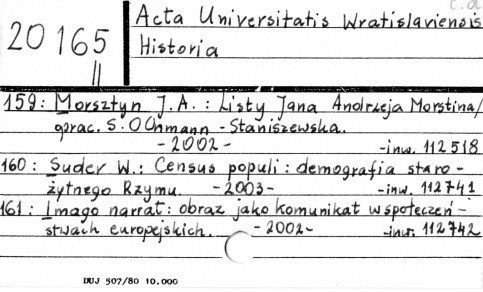 c.d.
Acta Universitatis Wratislaviensis
20165 Historia
II
159: Morsztyn J.A. : Listy Jana Andrzeja Morstina/
oprac. S. Ochmann - Staniszewska.
- 2002 - - inw. 112518
160: Suder W.: Census populi : demografia staro-
żytnego Rzymu. - 2003 - - inw. 112741
161: Imago narrat: obraz jako komunikat w społeczeń-
stwach europejskich. - 2002 - - inw. 112742
DUJ 507/80 10.000